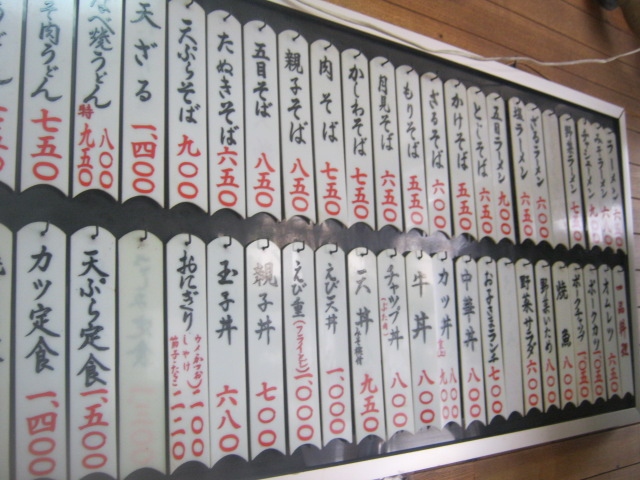 ラーメン 六〇〇
みそラーメン 八〇〇
チャシューメン 九〇〇
野菜ラーメン 七五〇
ざるラーメン 六〇〇
塩ラーメン 六五〇
五目ラーメン 九〇〇
とじそば 六五〇
かけそば 五五〇
ざるそば 六〇〇
もりそば 五五〇
月見そば 六五〇
かしわそば 七五〇
肉そば 七五〇
親子そば 八五〇
五目そば 八五〇
たぬきそば 六五〇
天ぷらそば 九〇〇
天ざる 一、四〇〇
なべ焼うどん 八〇〇
特 九五〇
肉うどん 七五〇
一品料理
オムレツ 六五〇
ポークカツ 一、〇五〇
ポークチャップ 一、〇五〇
焼魚 八〇〇
野菜いため 八〇〇
野菜サラダ 六〇〇
お子さまランチ 七〇〇
中華丼 八〇〇
カツ丼 八〇〇
九〇〇
牛丼 八〇〇
チャップ丼 八〇〇
天丼 みそ椀付 九五〇
えび天丼 一、〇〇〇
えび重(フライとじ) 一、〇〇〇
親子丼 七〇〇
玉子丼 六八〇
おにぎり
天ぷら定食 一、五〇〇
カツ定食 一、四〇〇